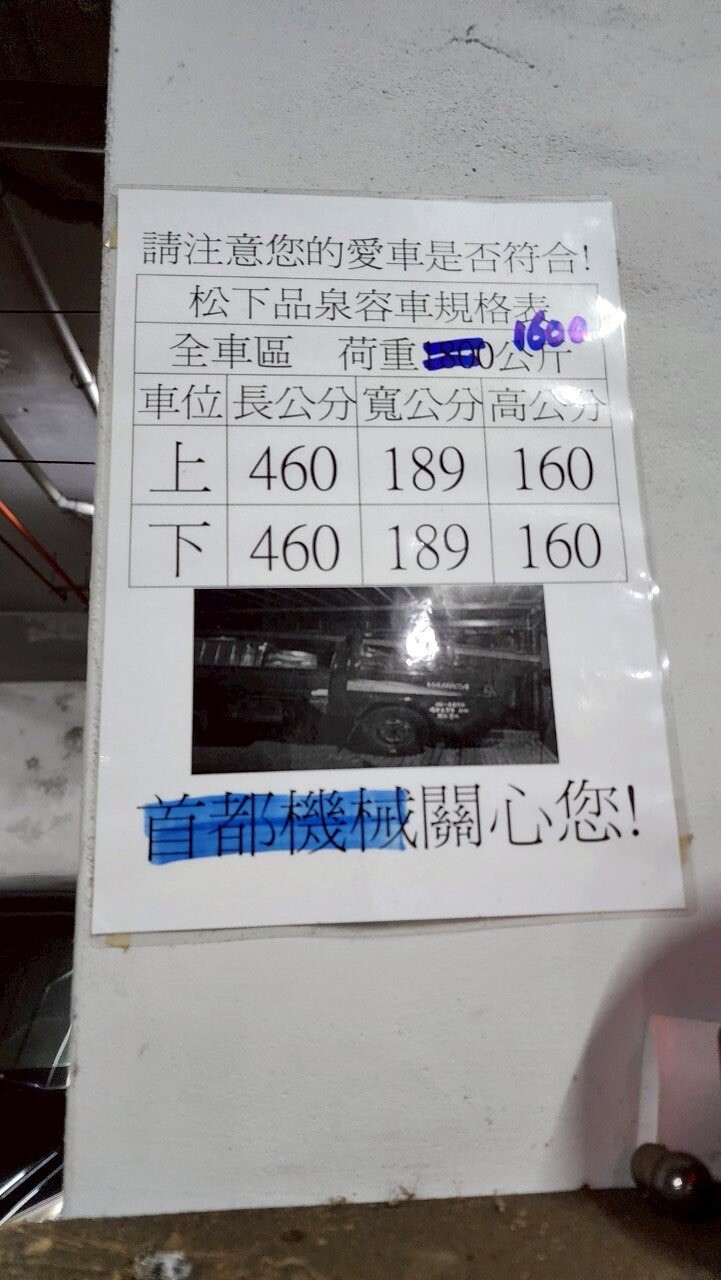 請注意您的愛車是否符合!
松下品泉容車規格表
全車區 荷重1600公斤
車位 長公分 寬公分 高公分
上 460 189 160
下 460 189 160
首都機械關心您!